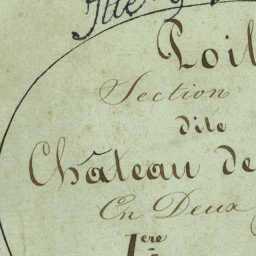 Poil
Section
dite
Château de
En Deux
1ère